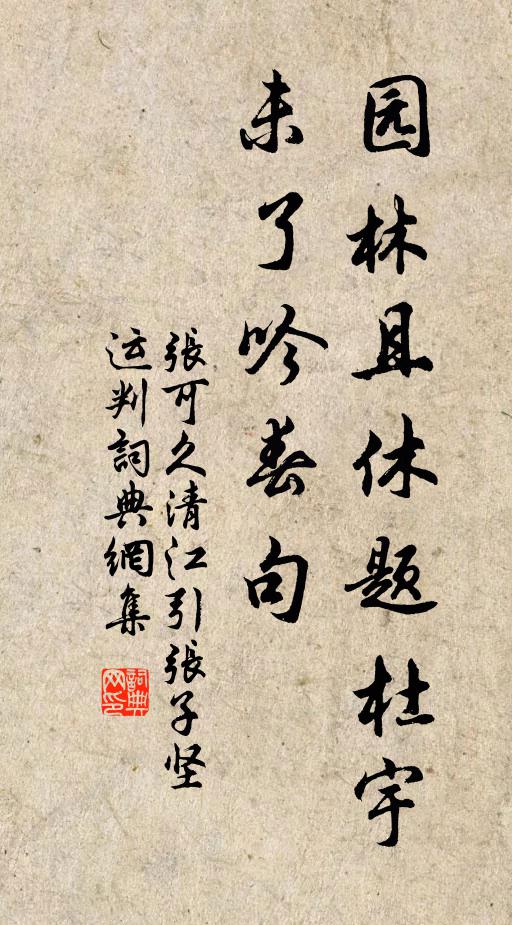 园林且休题杜宇
未了吟春句
張可久清江引張子坚
运判詞典網集
詞典
网印